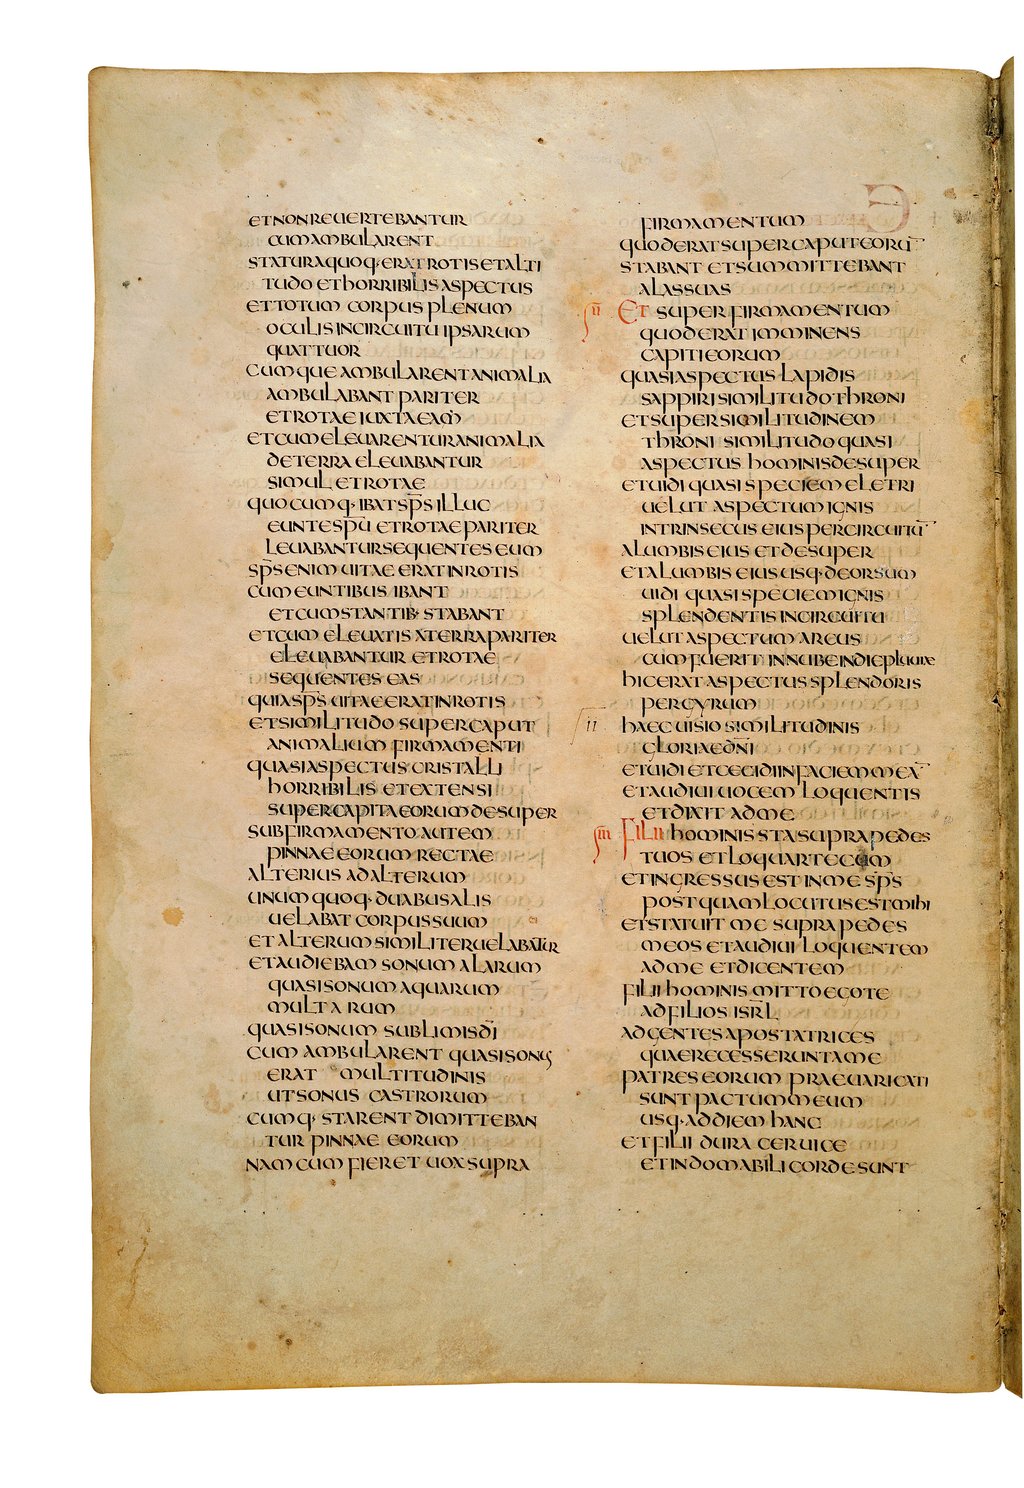 ET NON REUERTEBANTUR
CUM AMBULARENT
STATURA QUOQ· ERAT ROTIS ET ALTI
TUDO ET HORRIBILIS ASPECTUS
ET TOTUM CORPUS PLENUM
OCULIS IN CIRCUITU IPSARUM
QUATTUOR
CUMQUE AMBULARENT ANIMALIA
AMBULABANT PARITER
ET ROTAE IUXTA EA
ET CUM ELEUARENTUR ANIMALIA
DE TERRA ELEUABANTUR
SIMUL ET ROTAE
QUOCUMQ· IBAT SP̅S ILLUC
EUNTE SPU̅ ET ROTAE PARITER
LEUABANTUR SEQUENTES EUM
SP̅S ENIM UITAE ERAT IN ROTIS
CUM EUNTIBUS IBANT
ET CUM STANTIB· STABANT
ET CUM ELEUATIS A TERRA PARITER
ELEUABANTUR ET ROTAE
SEQUENTES EAS
QUIA SP̅S UITAE ERAT IN ROTIS
ET SIMILITUDO SUPER CAPUT
ANIMALIUM FIRMAMENTI
QUASI ASPECTUS CRISTALLI
HORRIBILIS ET EXTENSI
SUPER CAPITA EORUM DESUPER
SUB FIRMAMENTO AUTEM
PINNAE EORUM RECTAE
ALTERIUS AD ALTERUM
UNUMQUOQ· DUABUS ALIS
UELABAT CORPUS SUUM
ET ALTERUM SIMILITER UELABATUR
ET AUDIEBAM SONUM ALARUM
QUASI SONUM AQUARUM
MULTARUM
QUASI SONUM SUBLIMIS DI̅
CUM AMBULARENT QUASI SONUS
ERAT MULTITUDINIS
UT SONUS CASTRORUM
CUMQ· STARENT DIMITTEBAN
TUR PINNAE EORUM
NAM CUM FIERET UOX SUPRA
FIRMAMENTUM
QUOD ERAT SUPER CAPUT EORU̅
STABANT ET SUMMITTEBANT
ALAS SUAS
II ET SUPER FIRMAMENTUM
QUOD ERAT IMMINENS
CAPITI EORUM
QUASI ASPECTUS LAPIDIS
SAPPIRI SIMILITUDO THRONI
ET SUPER SIMILITUDINEM
THRONI SIMILITUDO QUASI
ASPECTUS HOMINIS DESUPER
ET UIDI QUASI SPECIEM ELETRI
UELUT ASPECTUM IGNIS
INTRINSECUS EIUS PER CIRCUITU̅
A LUMBIS EIUS ET DESUPER
ET A LUMBIS EIUS USQ· DEORSUM
UIDI QUASI SPECIEM IGNIS
SPLENDENTIS IN CIRCUITU
UELUT ASPECTUM ARCUS
CUM FUERIT IN NUBE IN DIE PLUUIAE
HIC ERAT ASPECTUS SPLENDORIS
PER GYRUM
II HAEC UISIO SIMILITUDINIS
GLORIAE DN̅I
ET UIDI ET CECIDI IN FACIEM MEA̅
ET AUDIUI UOCEM LOQUENTIS
ET DIXIT AD ME
III FILII HOMINIS STA SUPRA PEDES
TUOS ET LOQUAR TECUM
ET INGRESSUS EST IN ME SP̅S
POSTQUAM LOCUTUS EST MIHI
ET STATUIT ME SUPRA PEDES
MEOS ET AUDIUI LOQUENTEM
AD ME ET DICENTEM
FILII HOMINIS MITTO EGO TE
AD FILIOS ISR̅L
AD GENTES APOSTATRICES
QUAE RECESSERUNT A ME
PATRES EORUM PRAEUARICATI
SUNT PACTUM MEUM
USQ· AD DIEM HANC
ET FILII DURA CERUICE
ET INDOMABILI CORDE SUNT